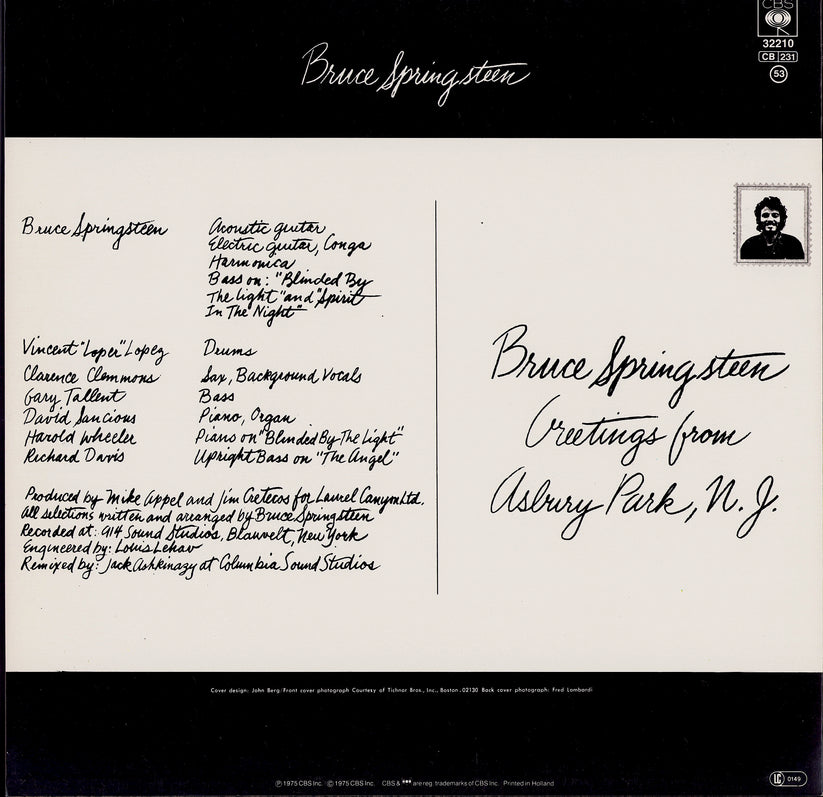 CBS
32210
CB 231
53
Bruce Springsteen
Bruce Springsteen Acoustic guitar
Electric guitar, Conga
Harmonica
Bass on: "Blinded By
The Light" and "Spirit
In The Night"
Vincent "Loper" Lopez Drums
Clarence Clemmons Sax, Background Vocals
Gary Tallent Bass
David Sancious Piano, Organ
Harold Wheeler Piano on "Blinded By The Light"
Richard Davis Upright Bass on "The Angel"
Produced by Mike Appel and Jim Cretecos for Laurel Canyon Ltd.
All selections written and arranged by Bruce Springsteen
Recorded at: 914 Sound Studios, Blauvelt, New York
Engineered by: Louis Lehav
Remixed by: Jack Ashkinazy at Columbia Sound Studios
Bruce Springsteen
Greetings from
Asbury Park, N. J.
Cover design: John Berg/Front cover photograph Courtesy of Tichnor Bros., Inc., Boston. 02130 Back cover photograph: Fred Lombardi
Ⓟ 1975 CBS Inc. Ⓒ 1975 CBS Inc. CBS & are reg. trademarks of CBS Inc. Printed in Holland
LC 0149